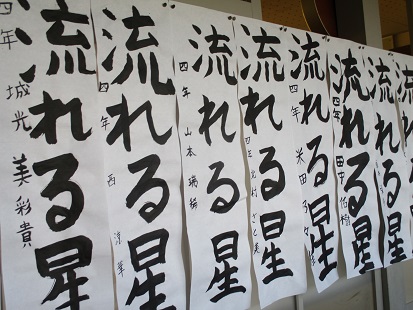 流れる星
四年 城光 美彩貴
流れる星
四年 西
流れる星
四年 山本 瑞
流れる星
四年 北村
流れる星
四年 米田
流れる星
四年 田中
流れる星
四年
流れる星